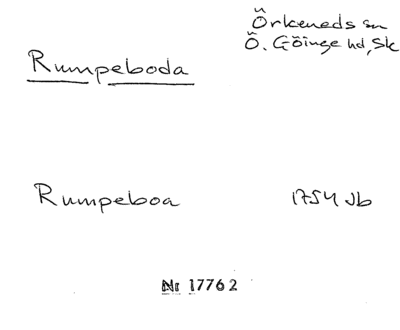 Örkeneds sn
Ö. Göinge hd, Sk
Rumpeboda
Rumpeboa 1754 Jb
Nr 17762